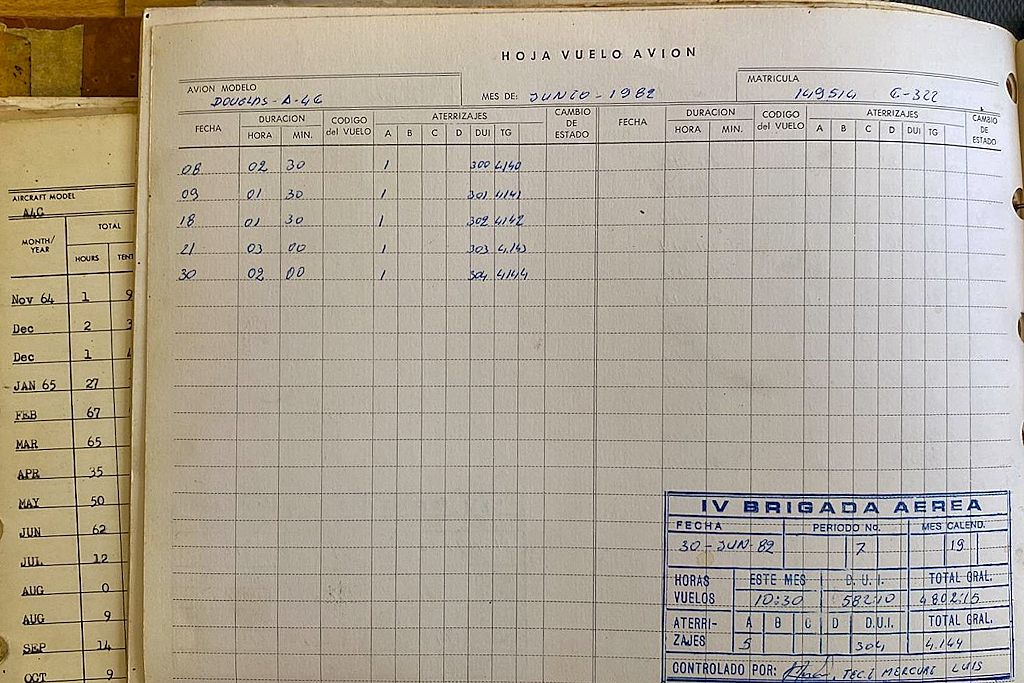 HOJA VUELO AVION
AVION MODELO DOUGLAS - A-4C MES DE: JUNIO - 1982 MATRICULA 149514 C-322
FECHA DURACION CODIGO del VUELO ATERRIZAJES CAMBIO DE ESTADO FECHA DURACION CODIGO del VUELO ATERRIZAJES CAMBIO DE ESTADO
HORA MIN. A B C D DUI TG HORA MIN. A B C D DUI TG
08 02 30 1 300 4.140
09 01 30 1 301 4.141
18 01 30 1 302 4.142
21 03 00 1 303 4.143
30 02 00 1 304 4.144
IV BRIGADA AEREA
FECHA PERIODO No. MES CALEND.
30-JUN-82 7 19
HORAS VUELOS ESTE MES D.U.I. TOTAL GRAL.
10:30 582:10 4.802:15
ATERRI-ZAJES A B C D D.U.I. TOTAL GRAL.
5 304 4.144
CONTROLADO POR: TEC.I MERCURI LUIS
AIRCRAFT MODEL
A4C
MONTH/YEAR TOTAL
HOURS TENT
Nov 64 1 9
Dec 2 3
Dec 1
JAN 65 27
FEB 67
MAR 65
APR 35
MAY 50
JUN 62
JUL 12
AUG 0
AUG 9
SEP 14
OCT 9